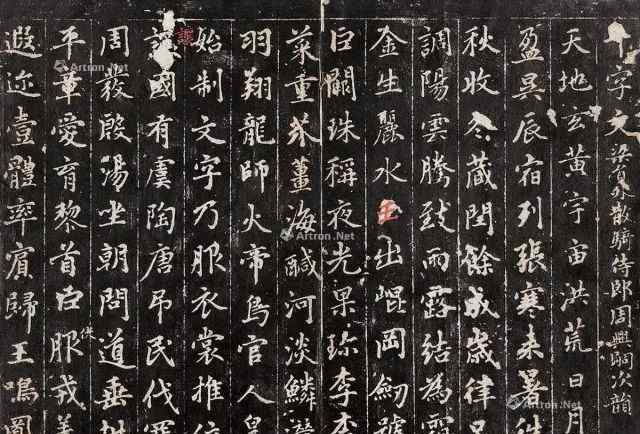 千字文 梁員外散騎侍郎周興嗣次韻
天地玄黃宇宙洪荒日月
盈昃辰宿列張寒来暑往
秋收冬藏閏餘成歲律呂
調陽雲騰致雨露結為霜
金生麗水玉出崐岡劒號
巨闕珠稱夜光果珎李柰
菜重芥薑海鹹河淡鱗潛
羽翔龍師火帝鳥官人皇
始制文字乃服衣裳推位
讓國有虞陶唐吊民伐罪
周發殷湯坐朝問道垂拱
平章愛育黎首臣服戎羌
遐迩壹體率賓歸王鳴鳳
Artron.Net
Artron.Net
Artron.Net